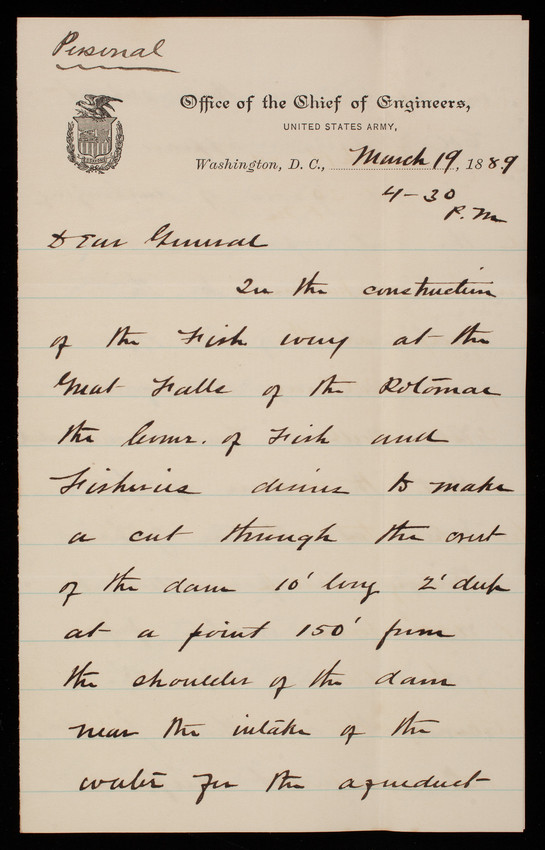 Personal
Office of the Chief of Engineers,
UNITED STATES ARMY,
Washington, D. C., March 19, 1889
4-30
P.M
Dear General
In the construction
of the Fish way at the
Great Falls of the Potomac
the Comr. of Fish and
Fisheries desires to make
a cut through the crest
of the dam 10' long 2' deep
at a point 150' from
the shoulder of the dam
near the intake of the
water for the aqueduct